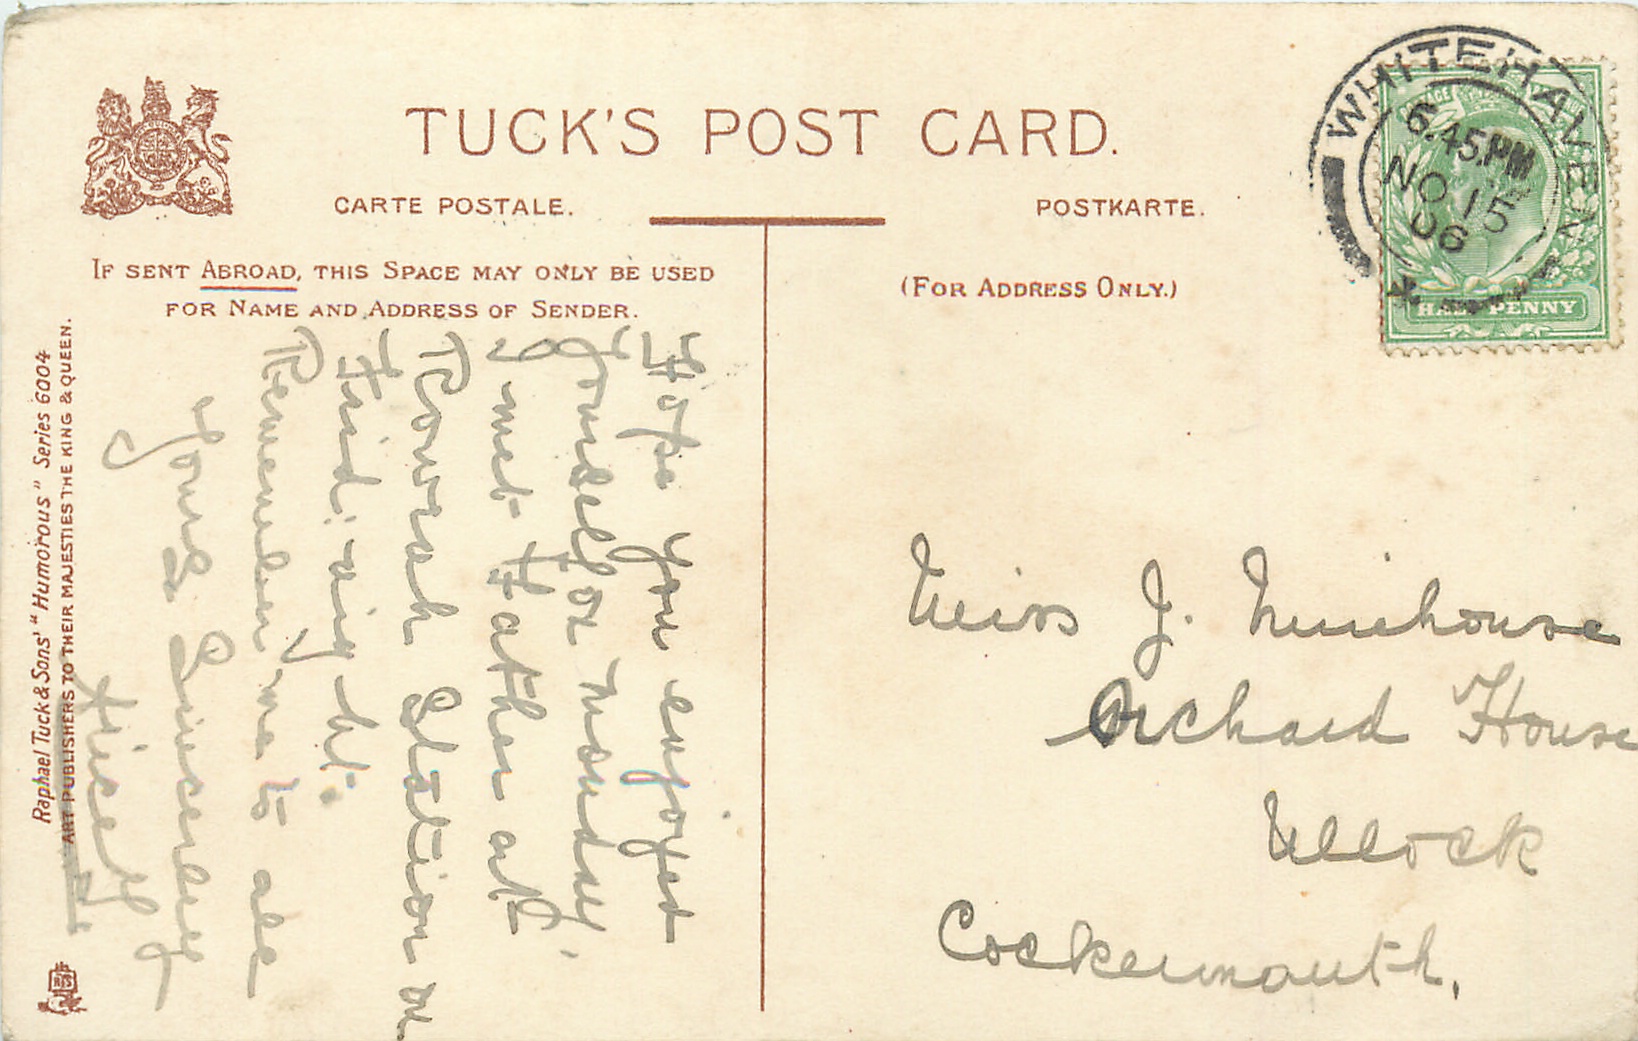 TUCK'S POST CARD.
CARTE POSTALE.
POSTKARTE.
IF SENT ABROAD, THIS SPACE MAY ONLY BE USED
FOR NAME AND ADDRESS OF SENDER.
(FOR ADDRESS ONLY.)
WHITEHAVEN
6.45.PM
NO 15
06
HALF PENNY
Raphael Tuck & Sons' "Humorous" Series 6004
ART PUBLISHERS TO THEIR MAJESTIES THE KING & QUEEN.
Hope you enjoyed
yourself on monday,
I met Father at
Rowrah Station on
Frid: night.
Remember me to all
yours Sincerely
Miss J. Muirhouse
Orchard House
Ullock
Cockermouth.